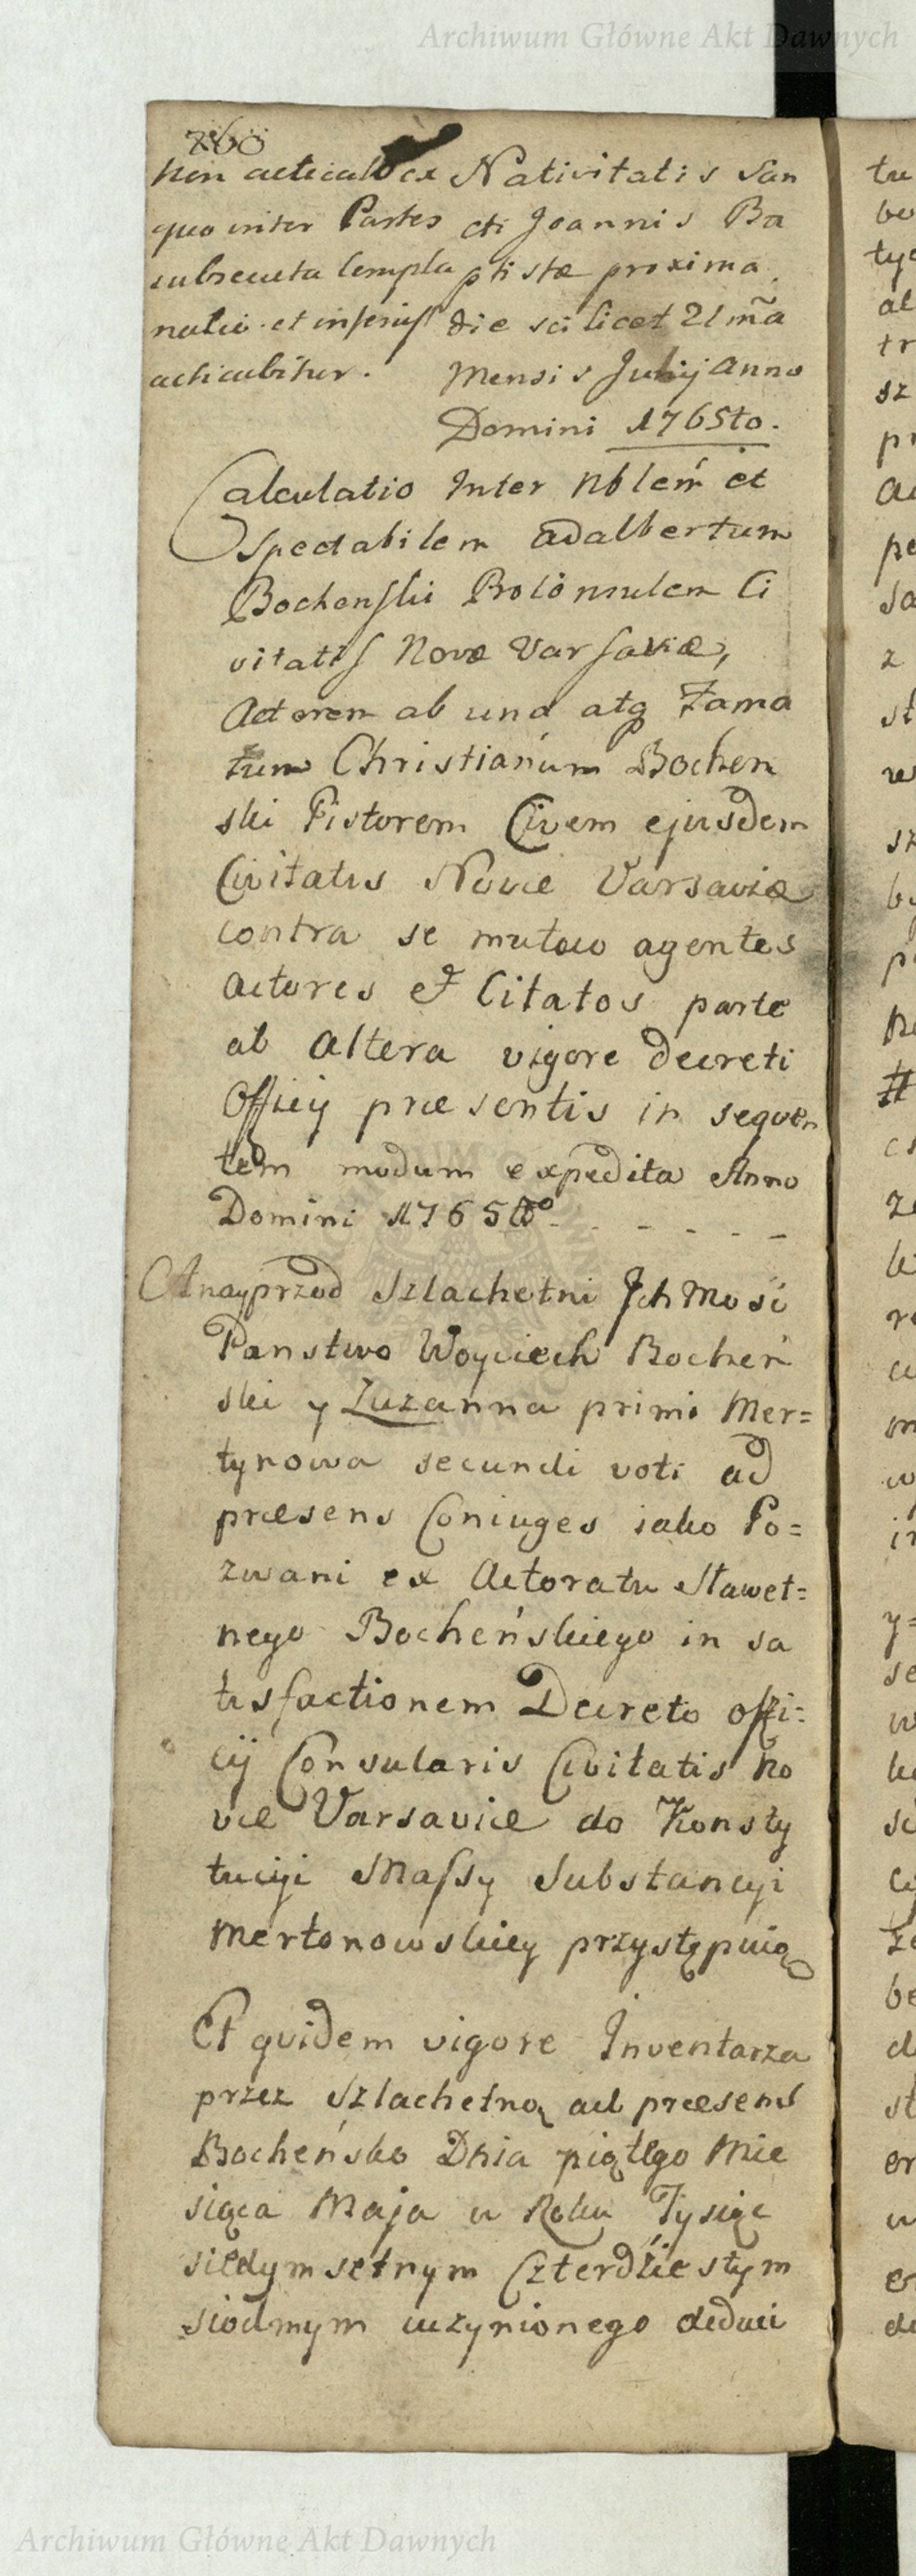 Archiwum Główne Akt Dawnych
760
Nativitatis San
quo inter Partes
cti Joannis Ba
subsecuta
ptistæ proxima
et inferius
die scilicet 21mã
acticabitur.
Mensis Julij Anno
Domini 1765to.
Calculatio Inter Nblem et
Spectabilem Adalbertum
Bochenski Ci
vitatis Novæ Varsaviæ,
Actorem ab una atq Fama
tum Christianum Bochen
ski Pistorem Civem ejusdem
Civitatis Novæ Varsaviæ
contra se mutuo agentes
Actores et Citatos parte
ab Altera vigore decreti
Officij præsentis in sequen
tem modum expedita Anno
Domini 1765to. - - - - -
A nayprzod Szlachetni Ich Mosć
Panstwo Woyciech Bocheń
ski y Zuzanna primo Mer=
tynowa secundi voti ad
præsens Coniuges iako Po=
zwani ex Actoratu Sławet=
nego Bocheńskiego in sa
tisfactionem Decreto offi=
cij Consularis Civitatis No
væ Varsaviæ do Konsty
tucyi Massy Substancyi
Mertonowskiey przystępuią
Et quidem vigore Inventarza
przez Szlachetną ad præsens
Bocheńsko Dnia piątego Mie
siąca Maja w Roku Tysiąc
siedymsetnym Czterdziestym
siodmym uczynionego deduci
Archiwum Główne Akt Dawnych